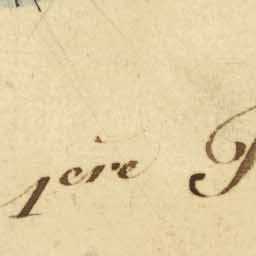 1ere P